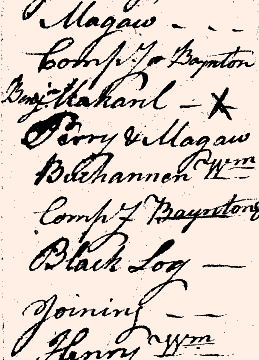 Magaw - - -
Comp: Jo Baynton
Benjn Makanl - X
Perry & Magaw
Buchannen Wm
Comp J Bayntons
Black Log -
Joining - -
Henry Wm